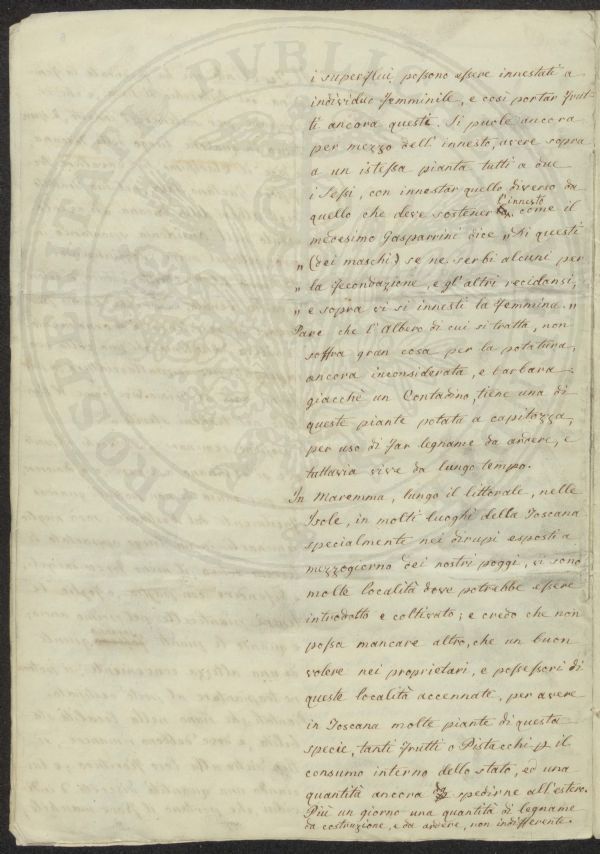 i superflui possono essere innestati a
individuo femminile, e così portar frut-
ti ancora questi. Si puole ancora
per mezzo dell' innesto, avere sopra
a un istessa pianta tutti a due
i Sessi, con innestar quello diverso da
quello che deve sostener l'innesto come il
medesimo Gasparrini dice „ Di questi
„ (dei maschi) se ne serbi alcuni per
„ la fecondazione, e gl'altri recidansi,
„ e sopra vi si innesti la femmina. „
Pare che l'Albero di cui si tratta, non
soffra gran cosa per la potatura,
ancora inconsiderata, e barbara
giacchè un Contadino, tiene una di
queste piante potata a capitozza,
per uso di far legname da ardere, e
tuttavia vive da lungo tempo.
In Maremma, lungo il littorale, nelle
Isole, in molti luoghi della Toscana
specialmente nei dirupi esposti a
mezzogiorno dei nostri poggi, vi sono
molte località dove potrebbe essere
introdotto e coltivato; e credo che non
possa mancare altro, che un buon
volere nei proprietari, e possessori di
queste località accennate, per avere
in Toscana molte piante di questa
specie, tanti frutti o Pistacchi p il
consumo interno dello stato, ed una
quantità ancora spedirne all'estero.
Più un giorno una quantità di legname
da costruzione, e da ardere, non indifferente.